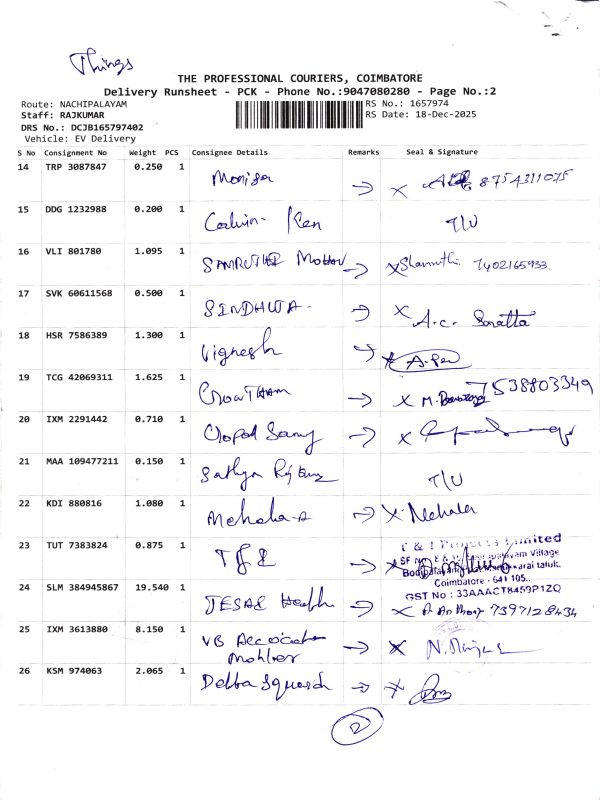 Things
THE PROFESSIONAL COURIERS, COIMBATORE
Delivery Runsheet - PCK - Phone No.:9047080280 - Page No.:2
Route: NACHIPALAYAM RS No.: 1657974
Staff: RAJKUMAR RS Date: 18-Dec-2025
DRS No.: DCJB165797402
Vehicle: EV Delivery
S No Consignment No Weight PCS Consignee Details Remarks Seal & Signature
14 TRP 3087847 0.250 1 Monisa → x 8754311075
15 DDG 1232988 0.200 1 Calvin Ken T/U
16 VLI 801780 1.095 1 SAMRUTHA MOHAN → x Shanmuthi 7402165933
17 SVK 60611568 0.500 1 SINDHUJA → x A.C.
18 HSR 7586389 1.300 1 Vignesh → x
19 TCG 42069311 1.625 1 GOWTHAM → x M. 7538803349
20 IXM 2291442 0.710 1 Gopal Samy → x
21 MAA 109477211 0.150 1 Sathya T/U
22 KDI 880816 1.080 1 Mekala → x Mekala
23 TUT 7383824 0.875 1 → x
Limited
Village
Coimbatore - 641 105.
GST No : 33AAACT8459P1ZQ
24 SLM 384945867 19.540 1 Health → x 7397128434
25 IXM 3613880 8.150 1 VB → x N.
26 KSM 974063 2.065 1 Delta Squarch → x
2